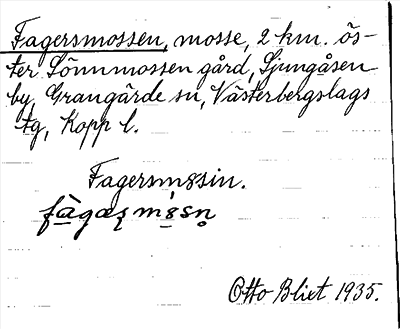 Fagersmossen, mosse, 2 km. ös-
ter Sönnmossen gård, Ljungåsen
by, Grangärde sn, Västerbergslags
tg, Kopp l.
Fagersm8sin.
Otto Blixt 1935.